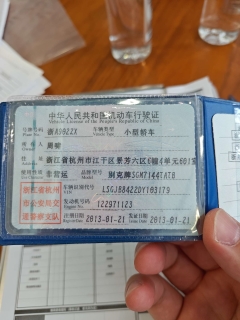 中华人民共和国机动车行驶证
Vehicle License of the People's Republic of China
号牌号码 浙A502ZX 车辆类型 小型轿车
Plate No. Vehicle Type
所有人 周菊
住址 浙江省杭州市江干区景芳六区6幢4单元601室
使用性质 非营运 品牌型号 别克牌SGM7144TATB
浙江省杭州 车辆识别代号 LSGJB84Z2DY103179
VIN
市公安局交 发动机号码 122971123
Engine No.
通警察支队 注册日期 2013-01-21 发证日期 2013-01-21
Register Date Issue Date